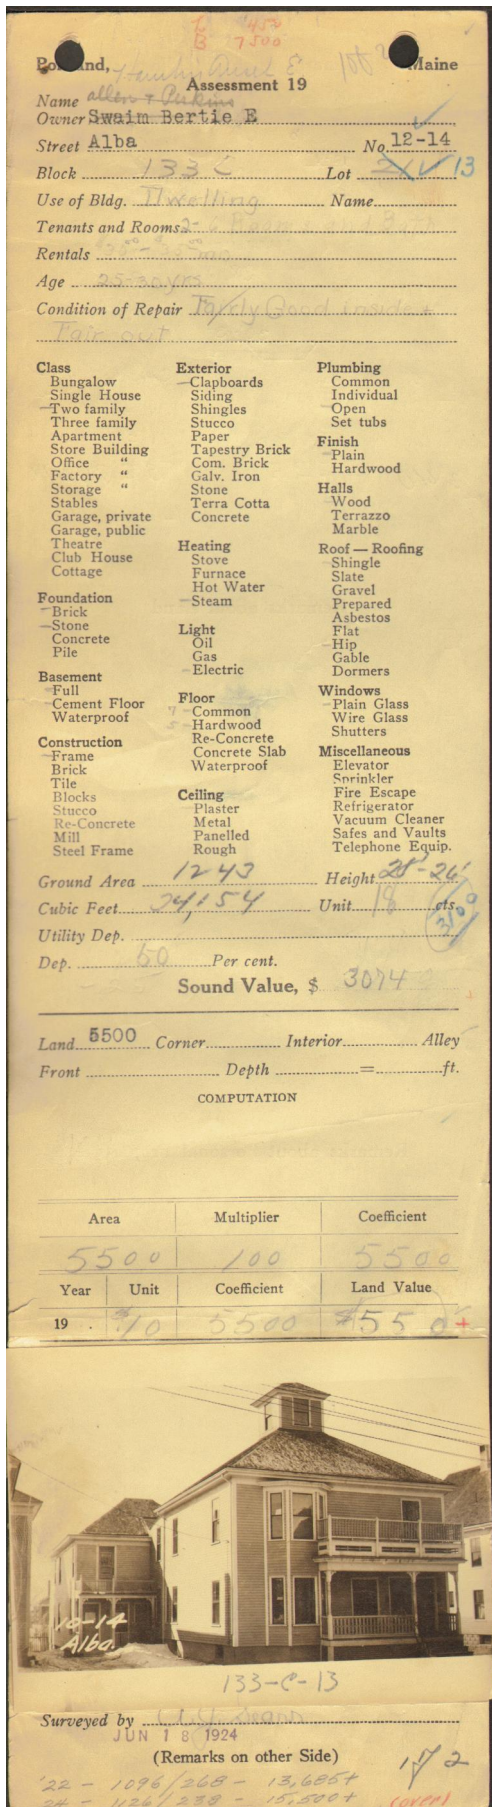 L 450
B 7500
Portland, Maine
Assessment 19
Name Allen & Perkins
Owner Swaim Bertie E
Street Alba No. 12-14
Block 133 C Lot 13
Use of Bldg. Dwelling Name
Tenants and Rooms 2-6 Rooms and Bath
Rentals
Age 25-30 yrs
Condition of Repair Fairly Good inside +
Fair out
Class
Bungalow
Single House
Two family
Three family
Apartment
Store Building
Office "
Factory "
Storage "
Stables
Garage, private
Garage, public
Theatre
Club House
Cottage
Foundation
Brick
Stone
Concrete
Pile
Basement
Full
Cement Floor
Waterproof
Construction
Frame
Brick
Tile
Blocks
Stucco
Re-Concrete
Mill
Steel Frame
Exterior
Clapboards
Siding
Shingles
Stucco
Paper
Tapestry Brick
Com. Brick
Galv. Iron
Stone
Terra Cotta
Concrete
Heating
Stove
Furnace
Hot Water
Steam
Light
Oil
Gas
Electric
Floor
7 Common
5 Hardwood
Re-Concrete
Concrete Slab
Waterproof
Ceiling
Plaster
Metal
Panelled
Rough
Plumbing
Common
Individual
Open
Set tubs
Finish
Plain
Hardwood
Halls
Wood
Terrazzo
Marble
Roof — Roofing
Shingle
Slate
Gravel
Prepared
Asbestos
Flat
Hip
Gable
Dormers
Windows
Plain Glass
Wire Glass
Shutters
Miscellaneous
Elevator
Sprinkler
Fire Escape
Refrigerator
Vacuum Cleaner
Safes and Vaults
Telephone Equip.
Ground Area 1243 Height 28'-26'
Cubic Feet 34,154 Unit 18 cts.
3100
Utility Dep.
Dep. 50 Per cent.
Sound Value, $ 3074
Land 5500 Corner Interior Alley
Front Depth = ft.
COMPUTATION
Area Multiplier Coefficient
5500 100 5500
Year Unit Coefficient Land Value
19 . $10 5500 $550 +
10-14
Alba.
133-C-13
Surveyed by
JUN 18 1924
(Remarks on other Side)
1 of 2
'22 - 1096/268 - 13,685+
24 - 1126/238 - 15,500+
(over)